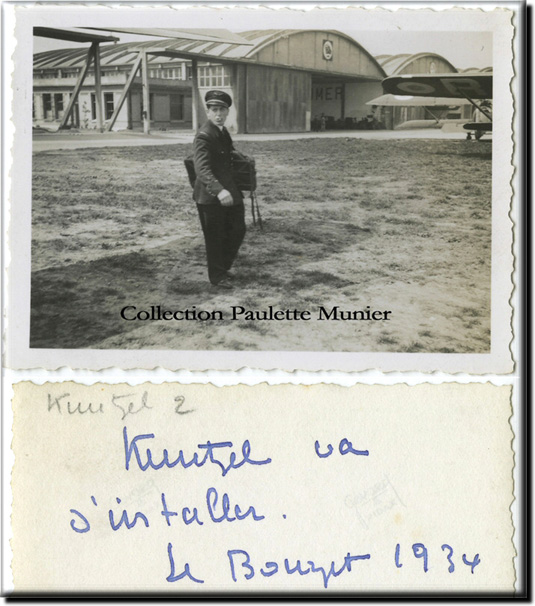 MER
Collection Paulette Munier
Kuntzel 2
Kuntzel va
s'installer.
Le Bourget 1934